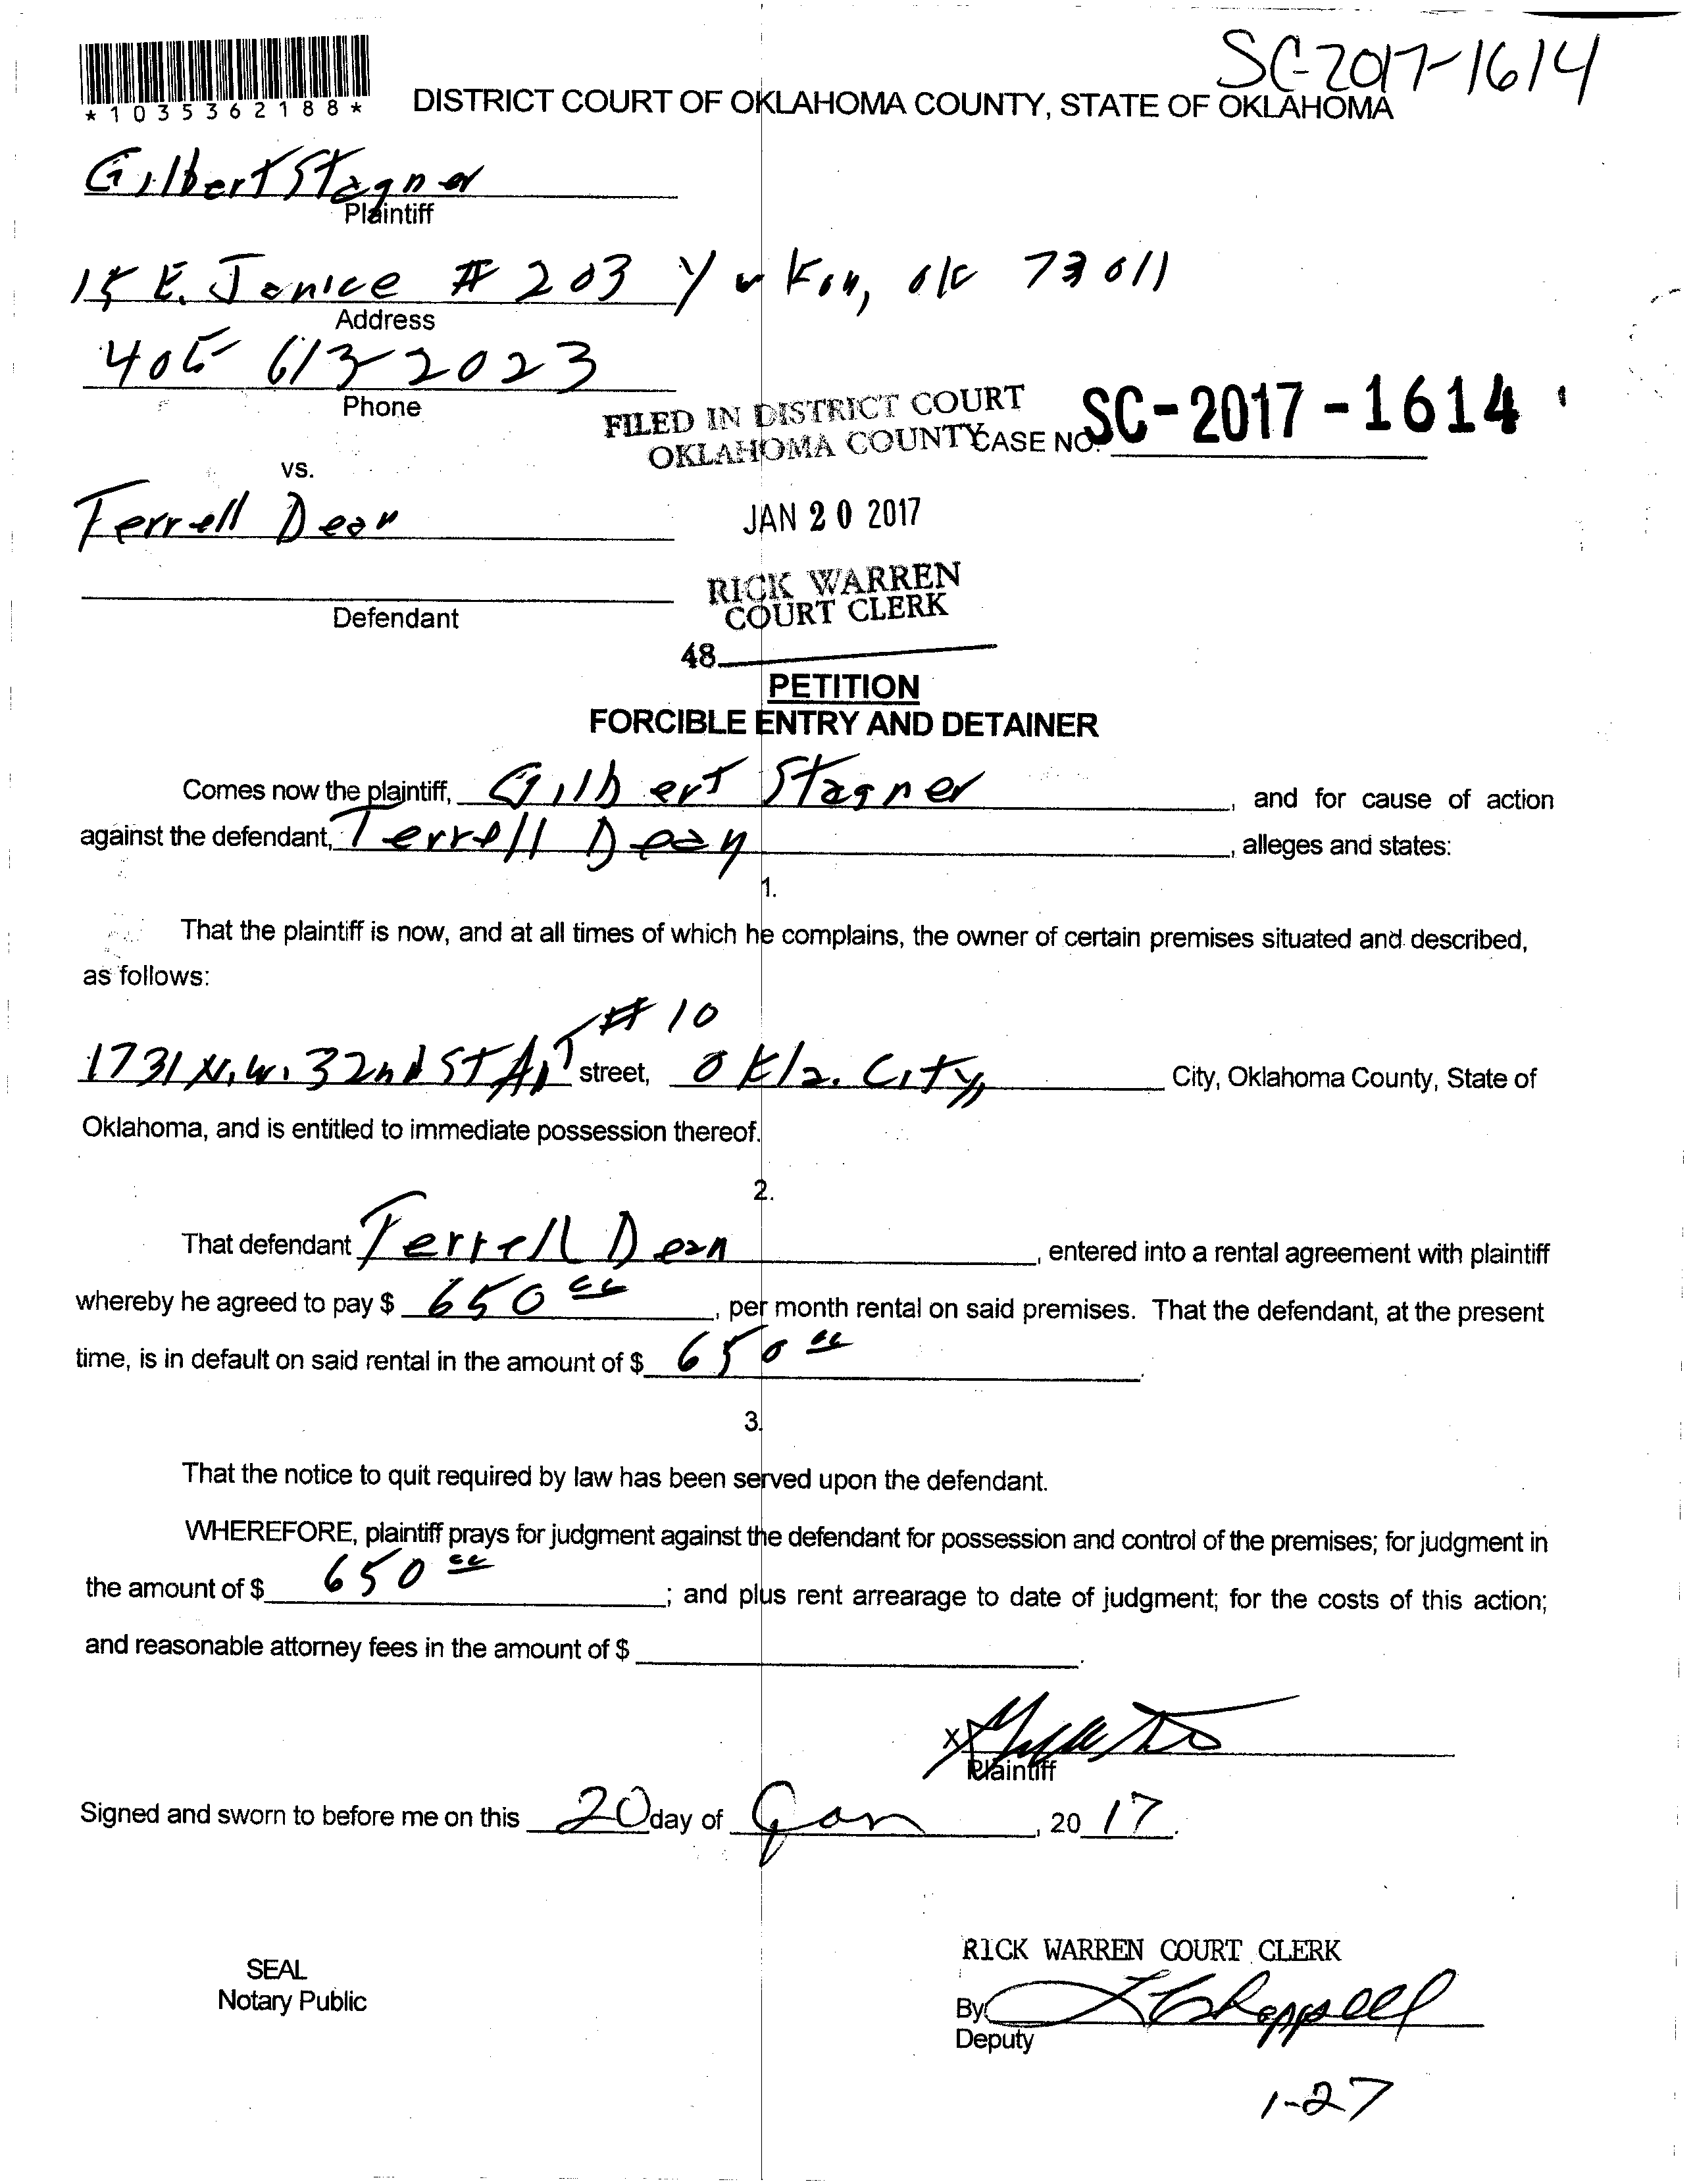 SC-2017-1614
*1035362188*
DISTRICT COURT OF OKLAHOMA COUNTY, STATE OF OKLAHOMA
Gilbert Stagner
Plaintiff
15 E. Janice # 203 Yukon, ok 73011
Address
405 613-2023
Phone
FILED IN DISTRICT COURT
OKLAHOMA COUNTY
CASE NO. SC-2017-1614
vs.
Terrell Dean
JAN 20 2017
RICK WARREN
COURT CLERK
Defendant
48
PETITION
FORCIBLE ENTRY AND DETAINER
Comes now the plaintiff, Gilbert Stagner, and for cause of action
against the defendant, Terrell Dean, alleges and states:
1.
That the plaintiff is now, and at all times of which he complains, the owner of certain premises situated and described,
as follows:
# 10
1731 N.W. 32nd ST Apt street, Okla. City, City, Oklahoma County, State of
Oklahoma, and is entitled to immediate possession thereof.
2.
That defendant Terrell Dean, entered into a rental agreement with plaintiff
whereby he agreed to pay $ 650, per month rental on said premises. That the defendant, at the present
time, is in default on said rental in the amount of $ 650.
3.
That the notice to quit required by law has been served upon the defendant.
WHEREFORE, plaintiff prays for judgment against the defendant for possession and control of the premises; for judgment in
the amount of $ 650; and plus rent arrearage to date of judgment; for the costs of this action;
and reasonable attorney fees in the amount of $ .
X
Plaintiff
Signed and sworn to before me on this 20 day of Jan, 20 17.
RICK WARREN COURT CLERK
SEAL
Notary Public
By
Deputy
1-27